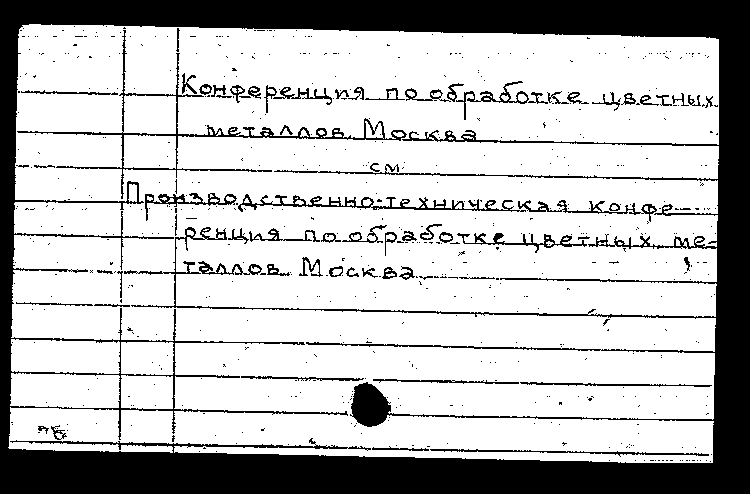 Конференция по обработке цветных
металлов. Москва
см.
Производственно-техническая конфе-
ренция по обработке цветных ме-
таллов. Москва.